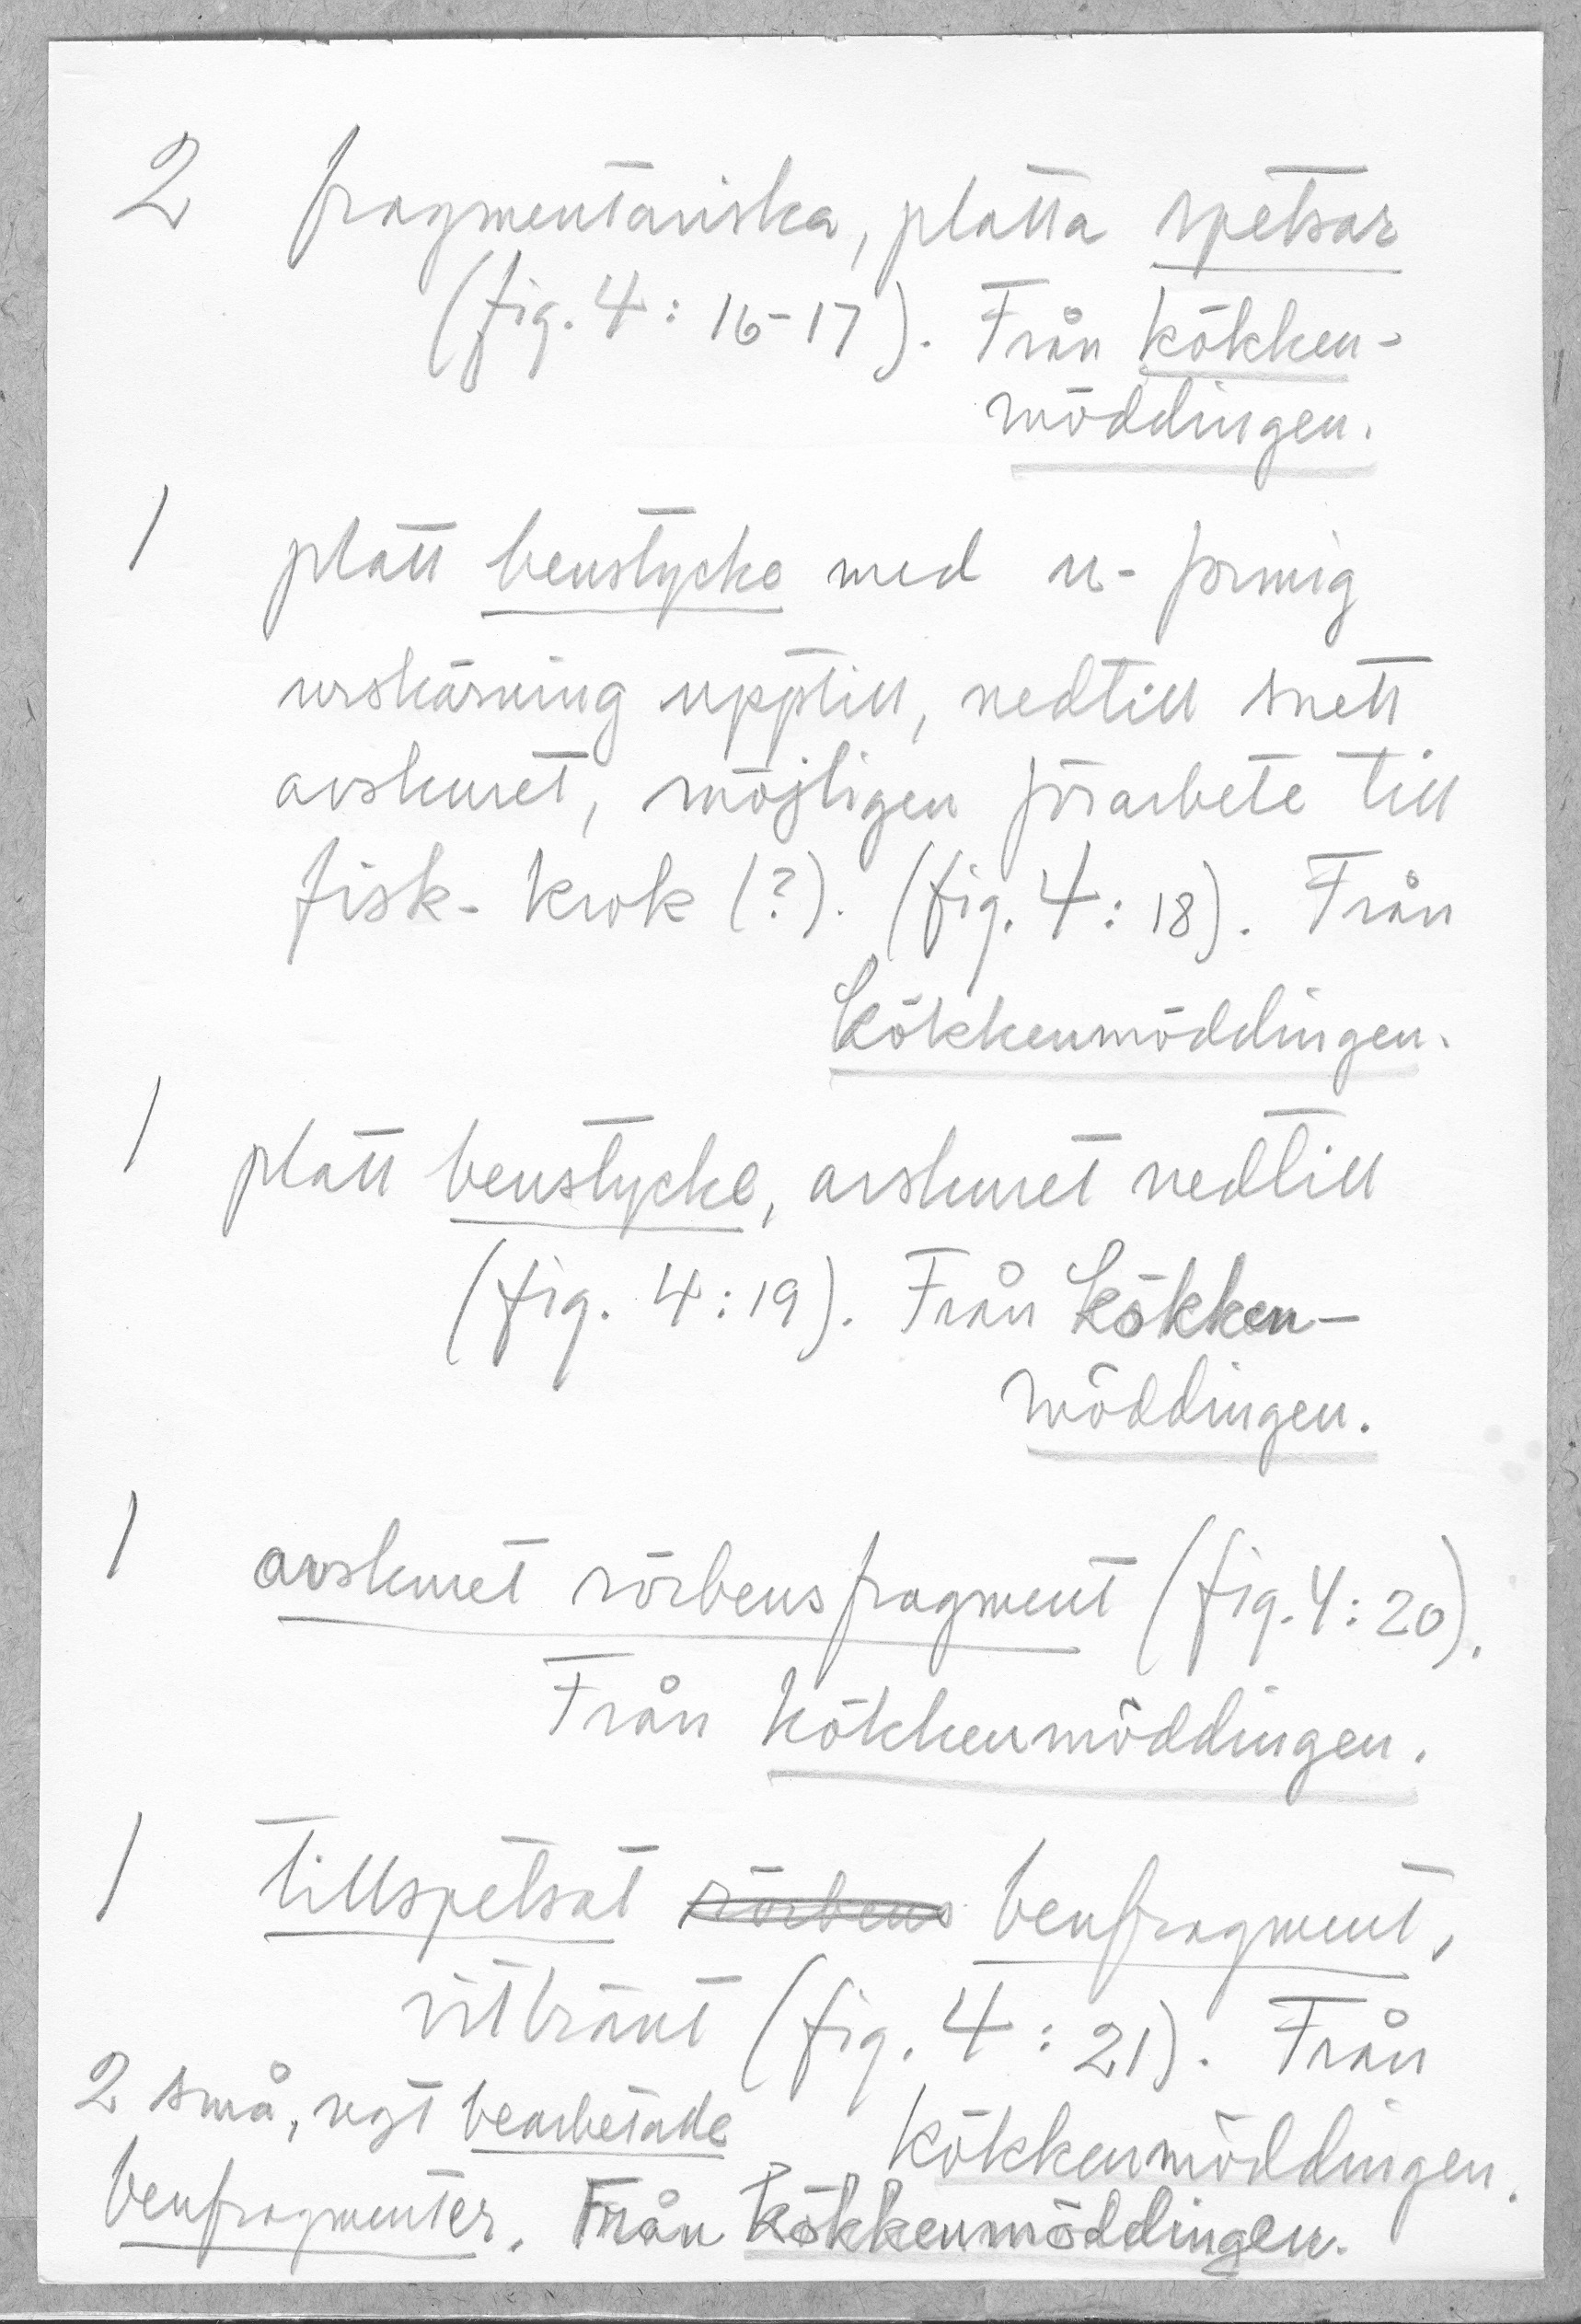 2 fragmentariska, platta spetsar
(fig. 4: 16-17). Från kökken-
möddingen.
1 platt benstycke med u-formig
urskärning upptill, nedtill snett
avskuret, möjligen förarbete till
fisk-krok (?). (fig. 4: 18). Från
kökkenmöddingen.
1 platt benstycke, avskuret nedtill
(fig. 4: 19). Från kökken-
möddingen.
1 avskuret rörbensfragment (fig. 4: 20).
Från kökkenmöddingen.
1 tillspetsat rörbens benfragment,
vitbränt (fig. 4: 21). Från
kökkenmöddingen.
2 små, svagt bearbetade
benfragmenter. Från kökkenmöddingen.